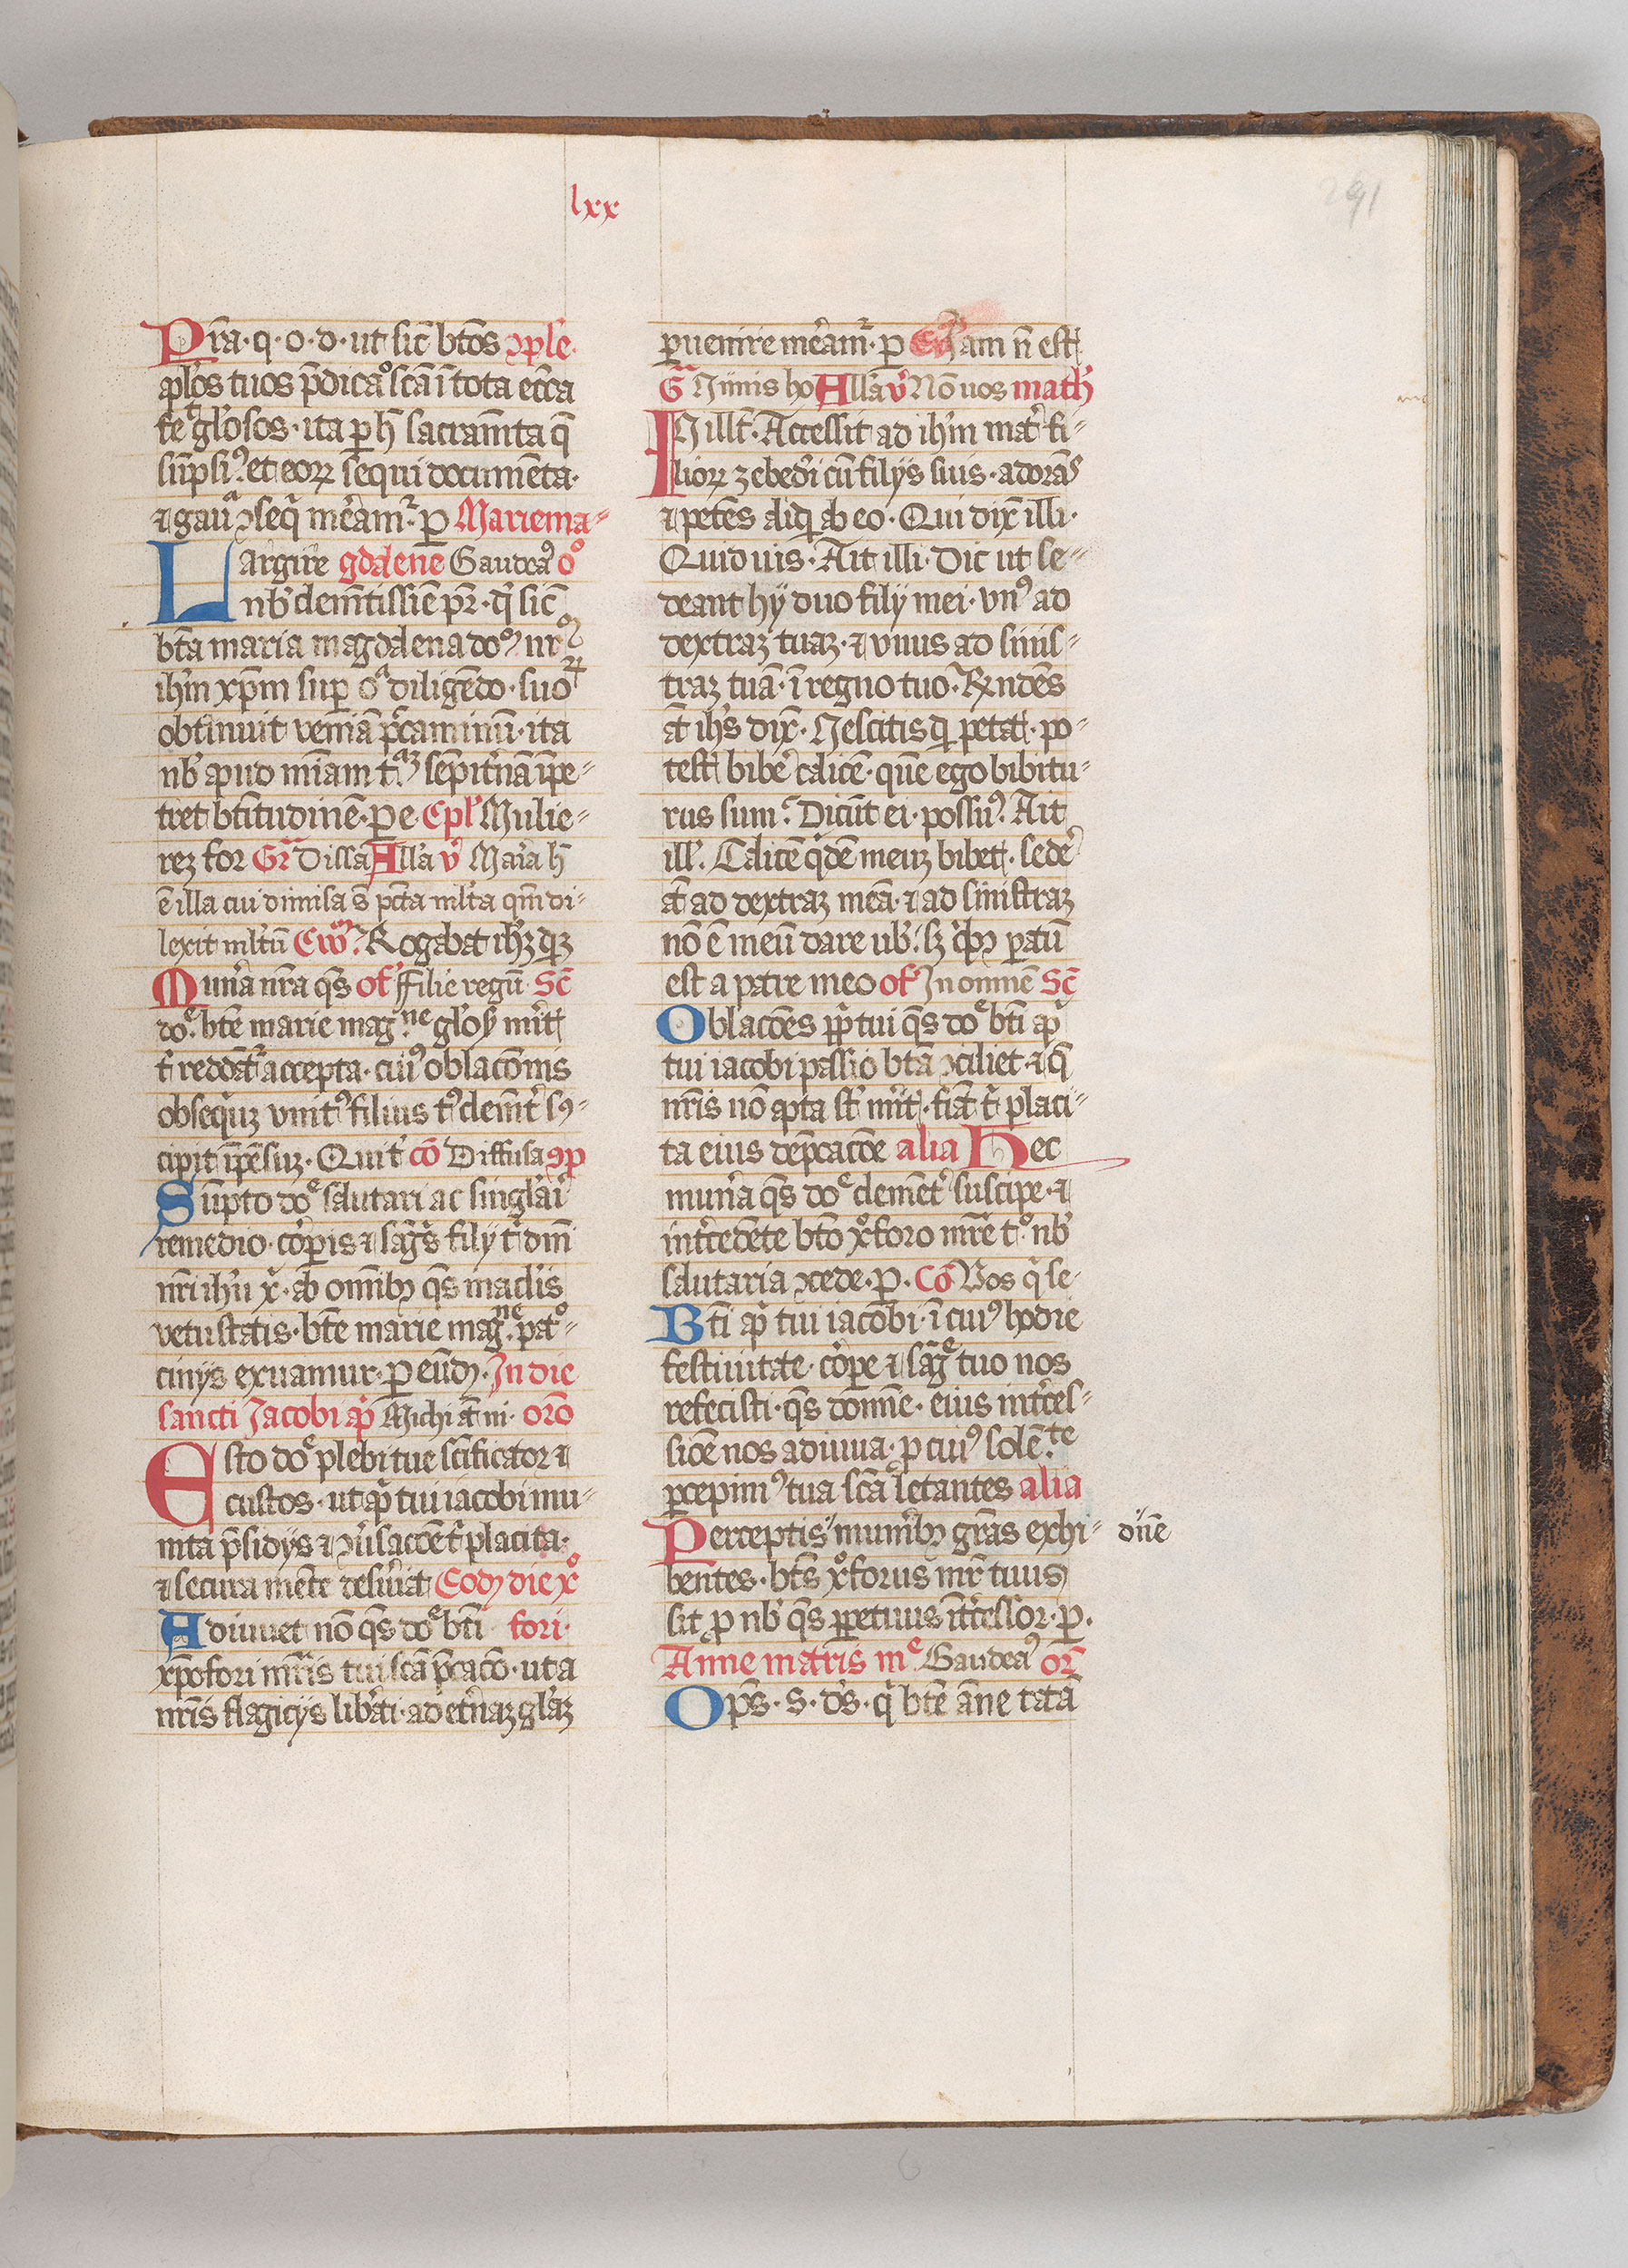 lxx
291
Pr̄a · q · o · d · ut sic̄ bt̄os ↄple
apl̓os tuos p̄dicac̄o scā ī tota etr̄ca
fe gl̓osos · ita p h̄ sacram̄ta q̄
sūpsim᷒ et eoꝝ sequi documēta ·
⁊ gaud̓ ↄseq̄ mēam᷑ · p Marie ma-
Largire gdalene Gaudea᷒ o᷒
nb̓ clem̄tissie pr̄ · q̓ sic̄
bt̄a maria magdalena do᷒ nr̄
ih̓m xp̄m sup oā diligēdo · suoꝝ
obtinuit veniā p̄caminū · ita
nb̓ apud mīam tuāꝫ sēpit̓nā īpe-
tret bt̄itudinē · p e · Epl̓ Mulie-
reꝫ for Gr̄ Diffu Alla v̓ Maria h̄
ē illa cui dimissa s̄ pc̄ta mlt̓a qm̄ di-
lexit mlt̓ū Ew̄ Rogabat ih̓ꝫ q̓dꝫ
Mun̓a nr̄a q̄s of̓ Filie regū Sc̄
doe᷒ bt̄e marie mag᷒ne gl̓osꝫ m̓itꝭ
t̓ reddat̓ accepta · cui᷒ oblac̄onis
obsequiꝫ vnit᷒ filius t᷒ clem̄t̓ s᷒-
cipit īpēsuꝫ · Qui t̓ cō Diffusa ↄp
Sūpto doe᷒ salutari ac singl̓ai
remedio · cor̓pis ⁊ sāg̓s filij t̓ dn̄i
nr̄i ih̓u x̓ · ab omībꝫ q̄s maculis
vetustatis · bt̄e marie mag᷒ne pat᷒-
cinijs exuamur · p eūdꝫ · In die
sancti Jacobi ap̄ Michi at̄ ni · orō
Esto doe᷒ plebi tue sc̄ificator ⁊
custos · ut ap̄ tui iacobi mu-
nita p̄sidijs ⁊ ↄv̓sac̄oe t̓ placita ·
⁊ secura mēte des̓uiat Eodꝫ die x᷒
Adiuuet nō q̄s doe᷒ bt̄i fori ·
xpofori mr̄is tui scā p̄cac̄o · ut a
nr̄is flagicijs lib̓ati · ad et̓naꝫ gl̓aꝫ
puenire mēam᷑ · p Ep̄ Iam n̄ estꝭ
Gr̄ Nimis ho Alla v̓ Nō uos math̓
In illt̄ · Accessit ad ih̓m mat̓ fi-
lioꝝ zebedei cū filijs suis · adorās
⁊ petēs aliq̓d ab eo · Qui dix̄ illi ·
Quid uis · Ait illi · Dic ut se-
deant hij duo filij mei · vn᷒ ad
dextraꝫ tuaꝫ · ⁊ vnus ad sinis-
traꝫ tuā · ī regno tuo · Rn̄dēs
at̄ ih̓s dix̄ · Nescitis q̓d petatꝭ · po-
testꝭ bibe᷒ calicē · quē ego bibitu-
rus sum · Dicūt ei · possum᷒ Ait
ill̓ · Calicē q̓dē meuꝫ bibetꝭ · sede᷒
at̄ ad dextraꝫ meā · ⁊ ad sinistraꝫ
nō ē meū dare ub̓ · sꝫ q̓bꝫ patū
est a patre meo of̓ In omnē Sc̄
Oblac̄oēs pp̄li tui q̄s doe᷒ bt̄i ap̄
tui iacobi passio bt̄a ↄciliet · ⁊ q̄
nr̄is nō apta st̓ m̓itꝭ · fiat t̓ placi-
ta eius dep̄cac̄oe alia Hec
mun̓a q̄s doe᷒ clemēt̓ suscipe · ⁊
int̓cedēte bt̄o x᷒foro mr̄e t᷒ · nb̓
salutaria ↄcede · p · Cō Vos q̓ se-
Bt̄i ap̄ tui iacobi · ī cui᷒ hodie
festiuitate · cor̓pe ⁊ sāg̓e tuo nos
refecisti · q̄s domīe · eius int̓ces-
sioē nos adiuua · p cui᷒ solēte
pcepim᷒ tua scā letantes alia
Perceptis " mun̓ibꝫ grās exhi- " dn̄e
bentes · bt̄s x᷒forus mr̄ tuus
sit p nb̓ q̄s ppetuus īt̓cessor · p ·
Anne matris me Gaudea᷒ or̄
Op̄s · s · ds̄ · q̓ bt̄e āne tatā